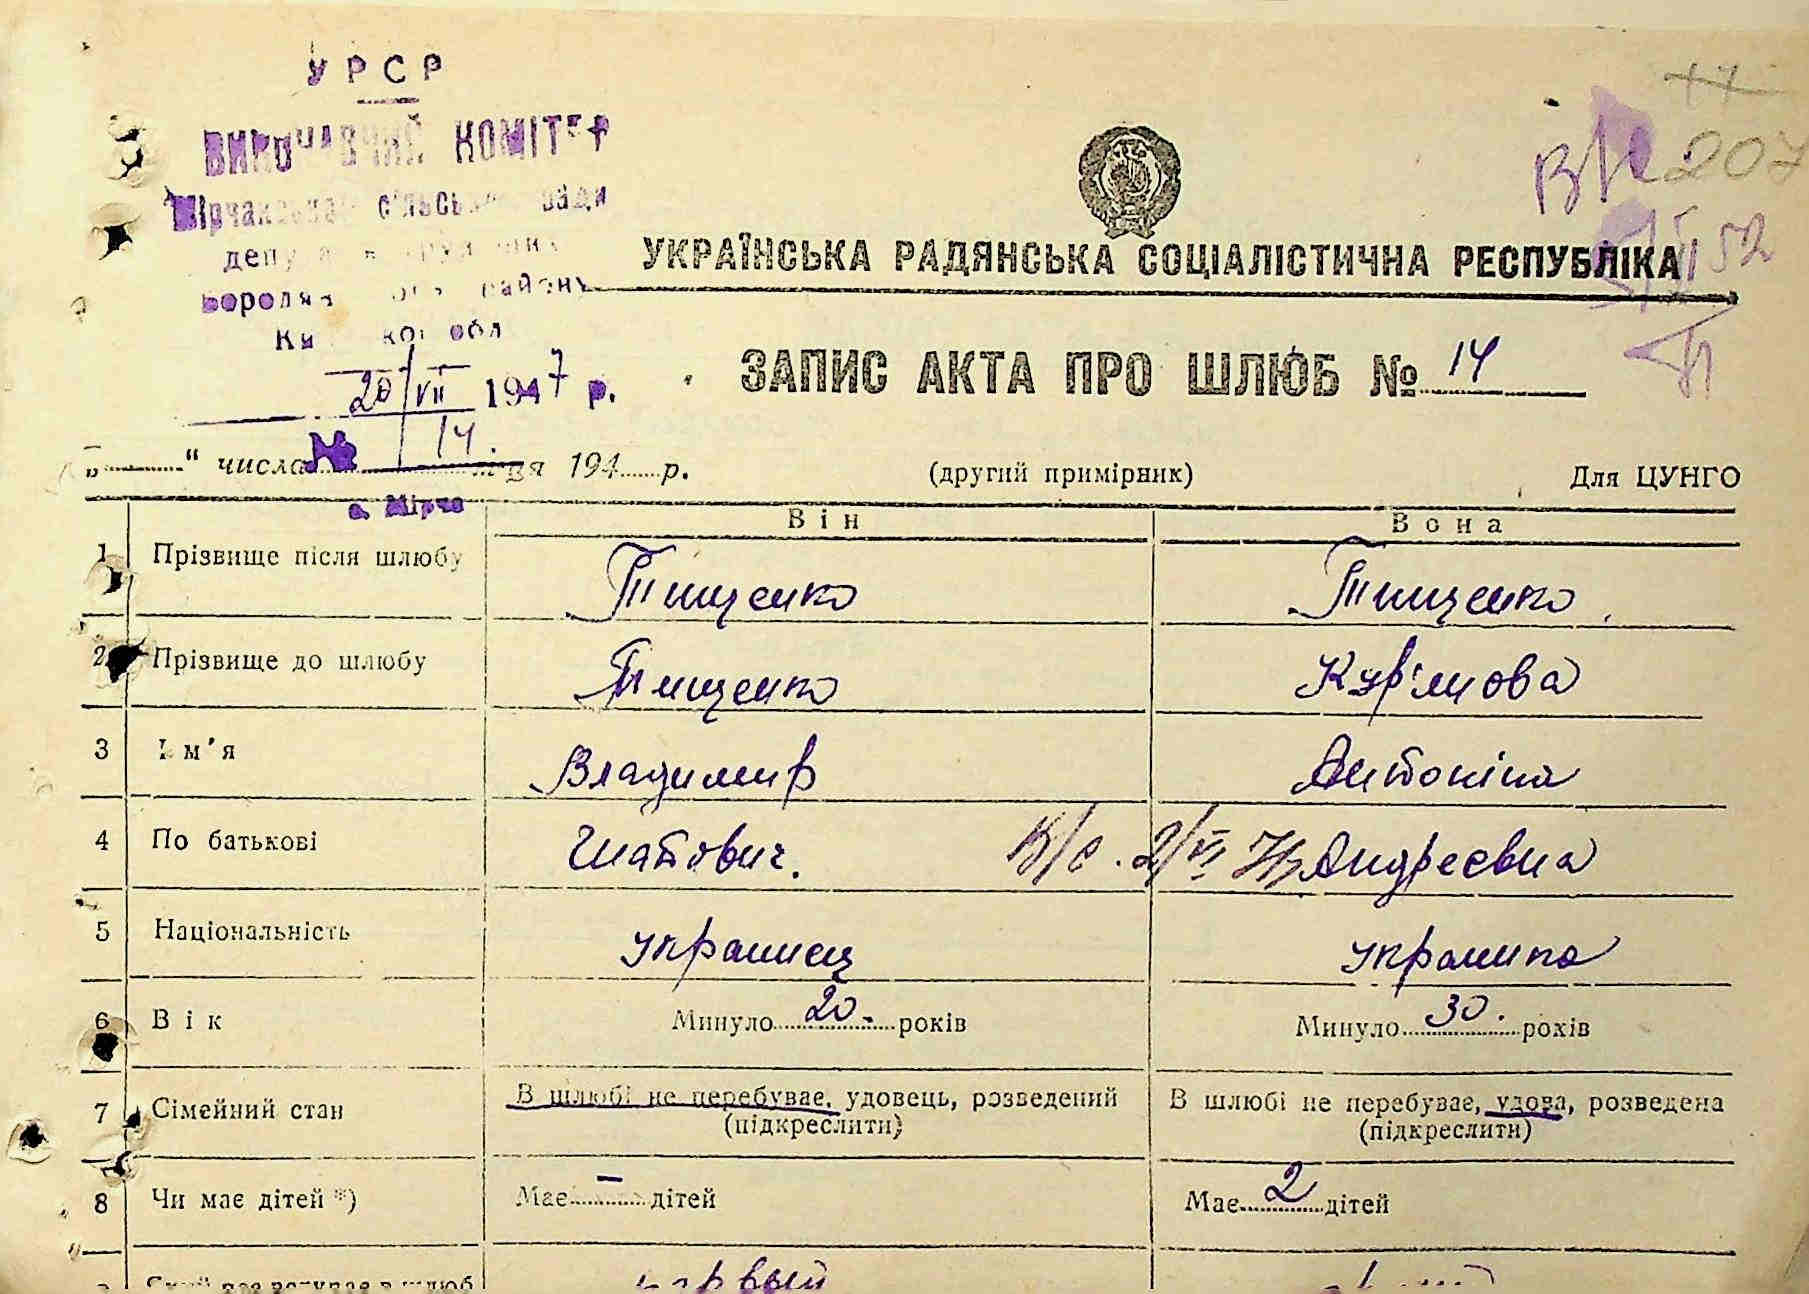 УРСР
ВИКОНАВЧИЙ КОМІТЕТ
Мірчанської сільської ради
депутатів трудящих
Бородянського району
Київської обл
20/VII 1947 р.
№ 14.
с. Мірча
17
В/с 207
52
УКРАЇНСЬКА РАДЯНСЬКА СОЦІАЛІСТИЧНА РЕСПУБЛІКА
ЗАПИС АКТА ПРО ШЛЮБ № 14
„ “ числа ця 194 р. (другий примірник) Для ЦУНГО
Він Вона
1 Прізвище після шлюбу Тищенко Тищенко
2 Прізвище до шлюбу Тищенко
3 Ім'я Владимир Антоніна
4 По батькові Игнатович. В/с. 2/VI Андреевна
5 Національність украинец украинка
6 Вік Минуло 20. років Минуло 30. років
7 Сімейний стан В шлюбі не перебуває, удовець, розведений В шлюбі не перебуває, удова, розведена
(підкреслити) (підкреслити)
8 Чи має дітей *) Має – дітей Має 2 дітей
раз вступає в шлюб первый